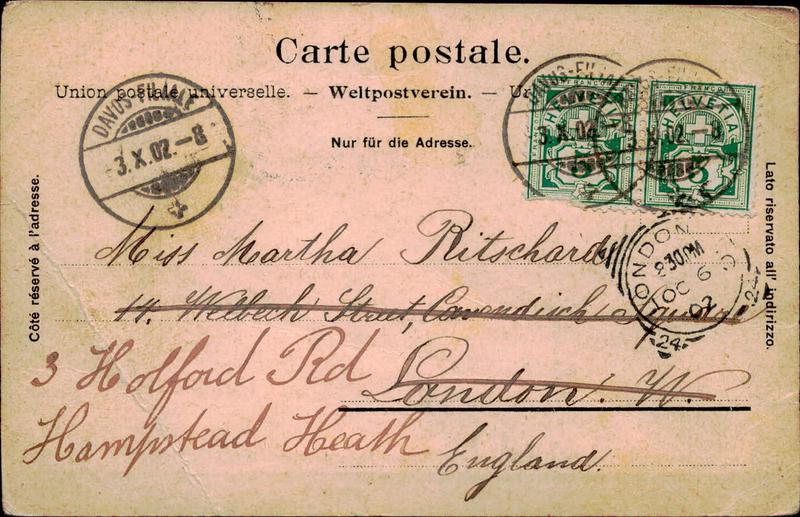 Carte postale.
Union postale universelle. – Weltpostverein. –
Nur für die Adresse.
Côté réservé à l'adresse.
Lato riservato all' indirizzo.
DAVOS-FILIALE
3.X.02.–8
FRANCO
HELVETIA
5
DAVOS-FILIALE
3.X.02
FRANCO
HELVETIA
5
X.02.–8
LONDON
2 30PM
OC 6
02
24
24
Miss Martha Ritschard
14. Welbeck Street, Cavendisch Square
London. W.
England.
3 Holford Rd
Hampstead Heath